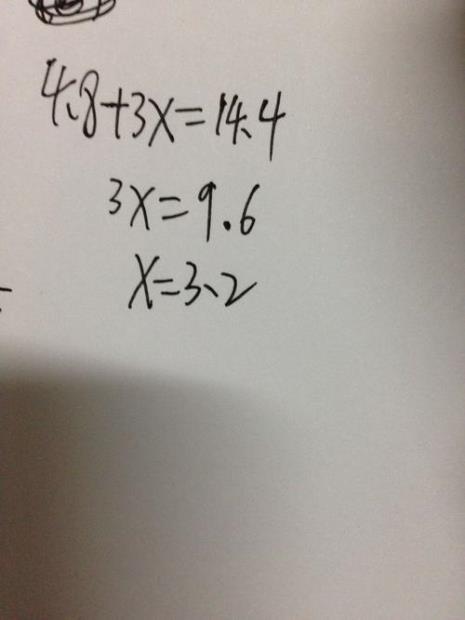 4.8+3x=14.4
3x=9.6
x=3.2